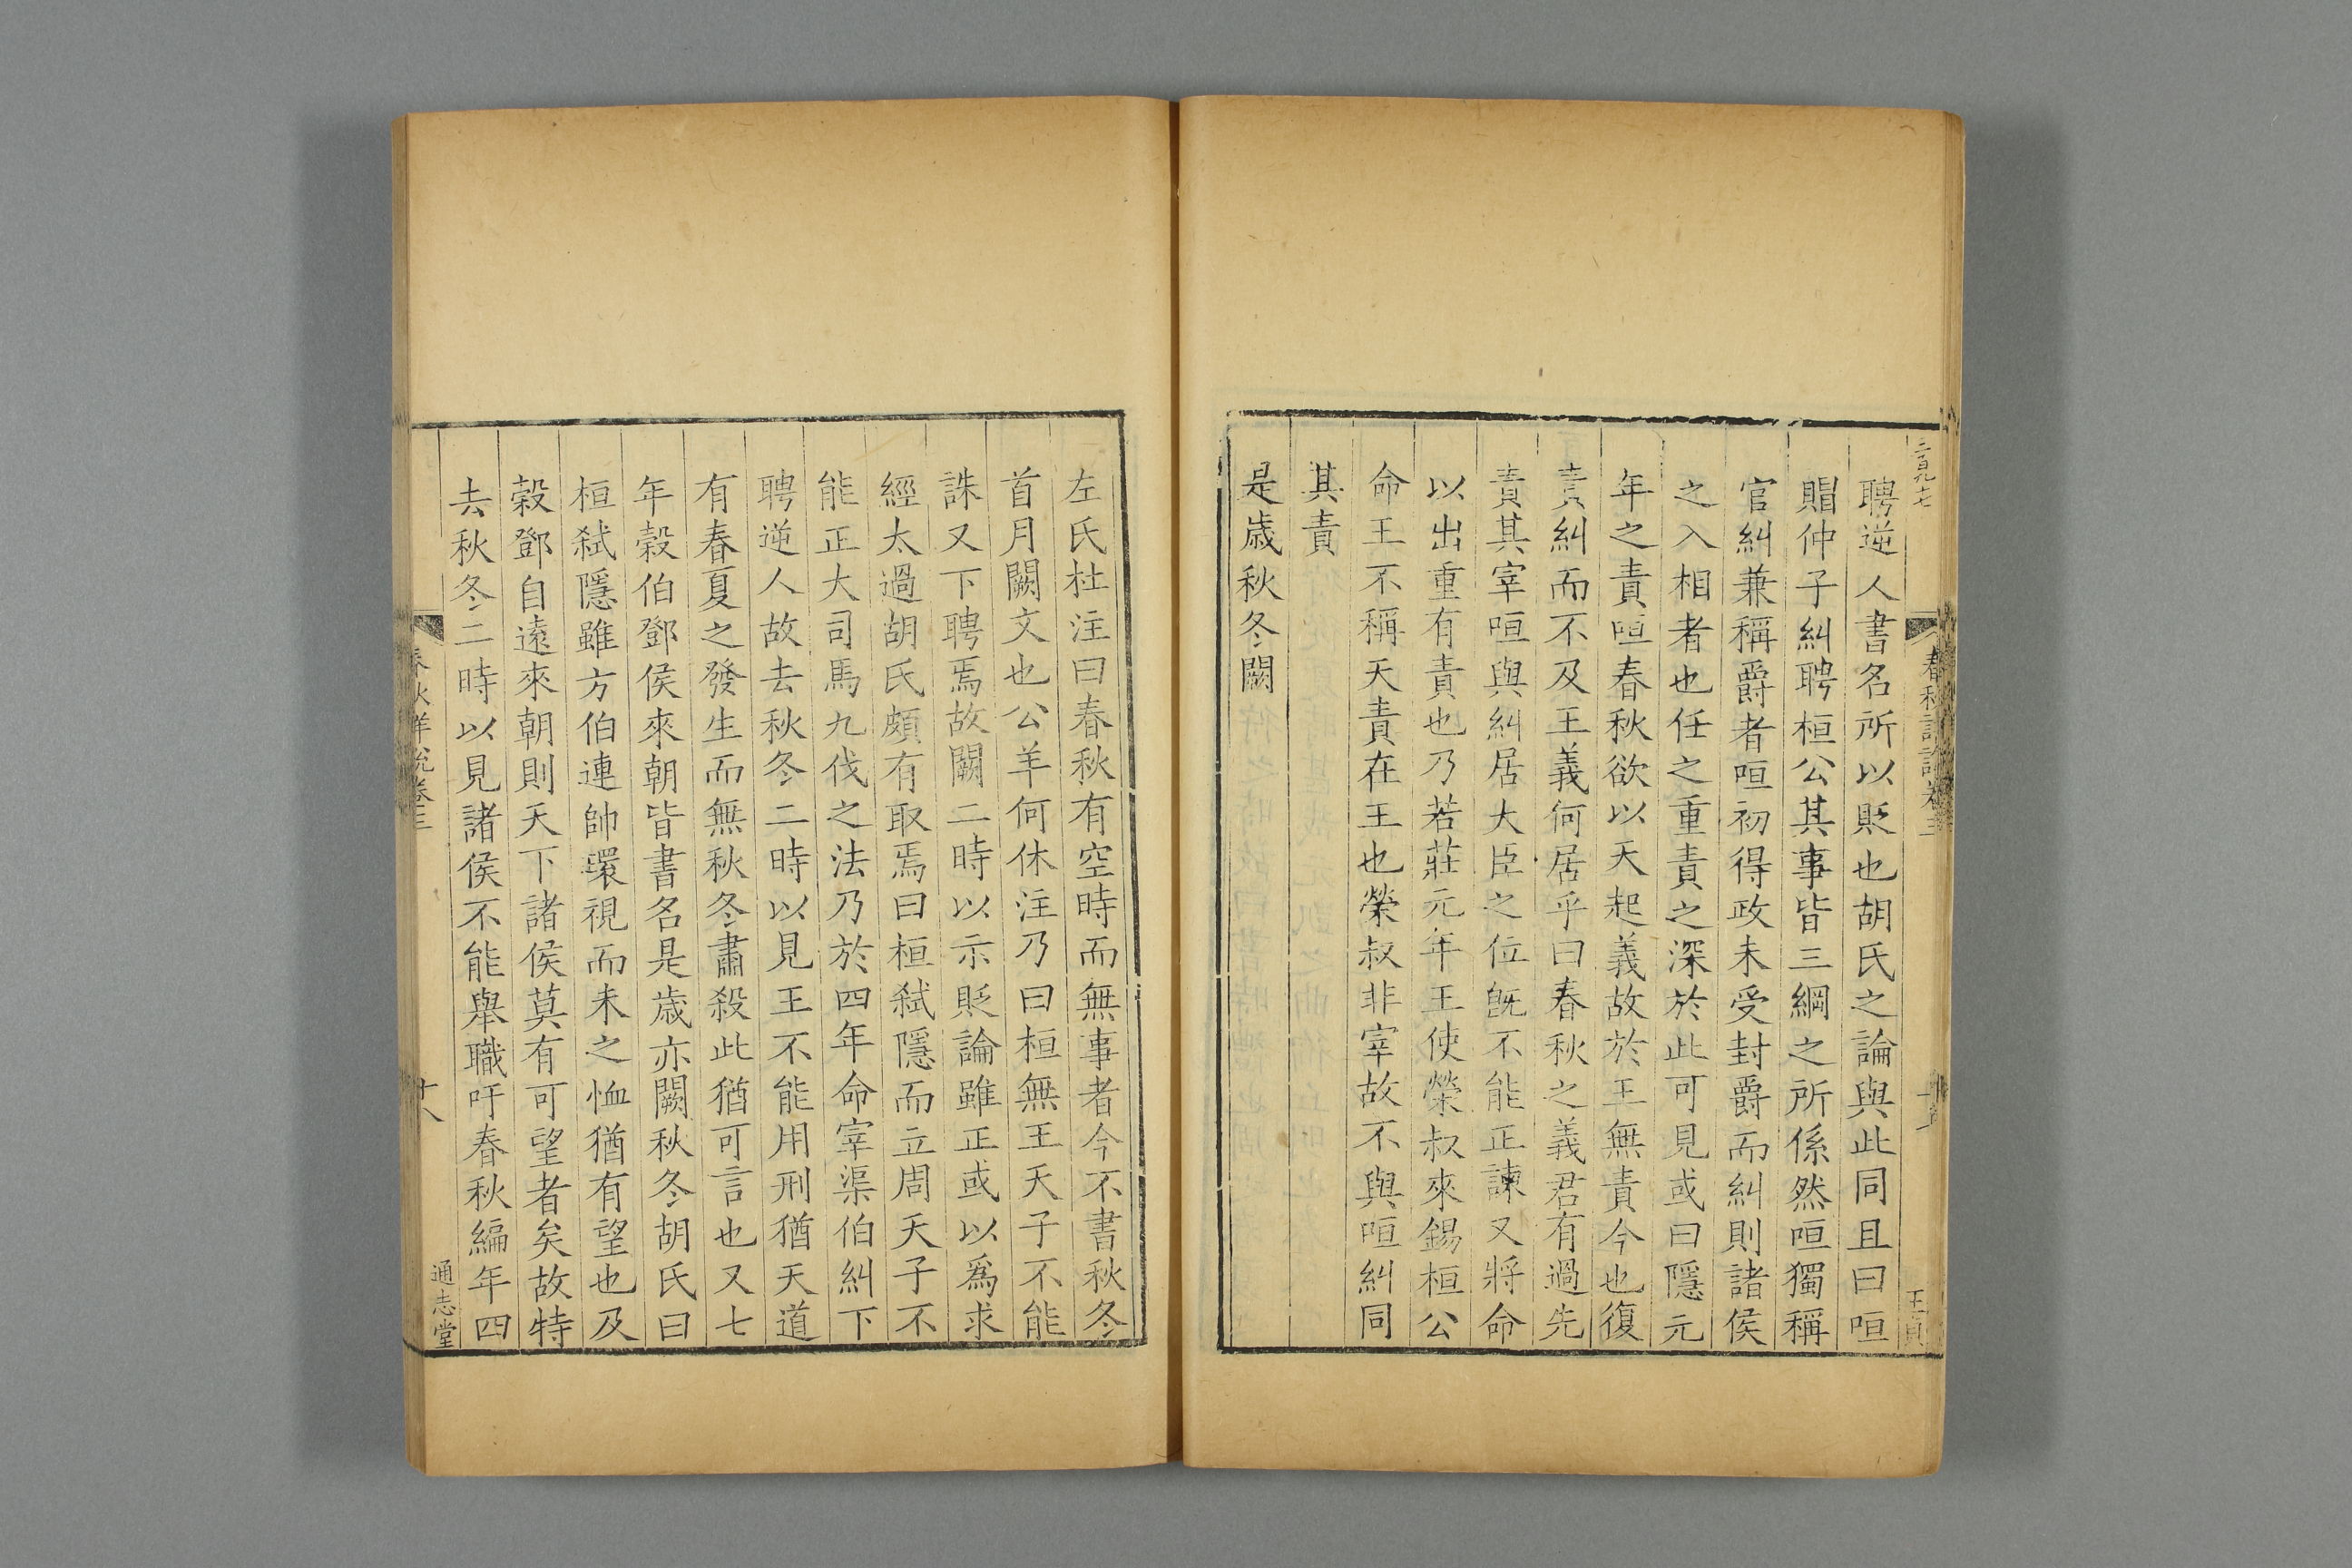 聘逆人書名所以貶也胡氏之論與此同且曰咺
賵仲子糾聘桓公其事皆三綱之所係然咺獨稱
官糾兼稱爵者咺初得政未受封爵而糾則諸侯
之入相者也任之重責之深於此可見或曰隱元
年之責咺春秋欲以天起義故於王無責今也復
責糾而不及王義何居乎曰春秋之義君有過先
責其宰咺與糾居大臣之位旣不能正諫又將命
以出重有責也乃若莊元年王使榮叔來錫桓公
命王不稱天責在王也榮叔非宰故不與咺糾同
其責
是歳秋冬闕
左氏杜注曰春秋有空時而無事者今不書秋冬
首月闕文也公羊何休注乃曰桓無王天子不能
誅又下聘焉故闕二時以示貶論雖正或以爲求
經太過胡氏頗有取焉曰桓弑隱而立周天子不
能正大司馬九伐之法乃於四年命宰渠伯糾下
聘逆人故去秋冬二時以見王不能用刑猶天道
有春夏之發生而無秋冬肅殺此猶可言也又七
年穀伯鄧侯來朝皆書名是歳亦闕秋冬胡氏曰
桓弑隱雖方伯連帥環視而未之恤猶有望也及
穀鄧自遠來朝則天下諸侯莫有可望者矣故特
去秋冬二時以見諸侯不能舉職吁春秋編年四
春秋詳說卷三
十八
通志堂